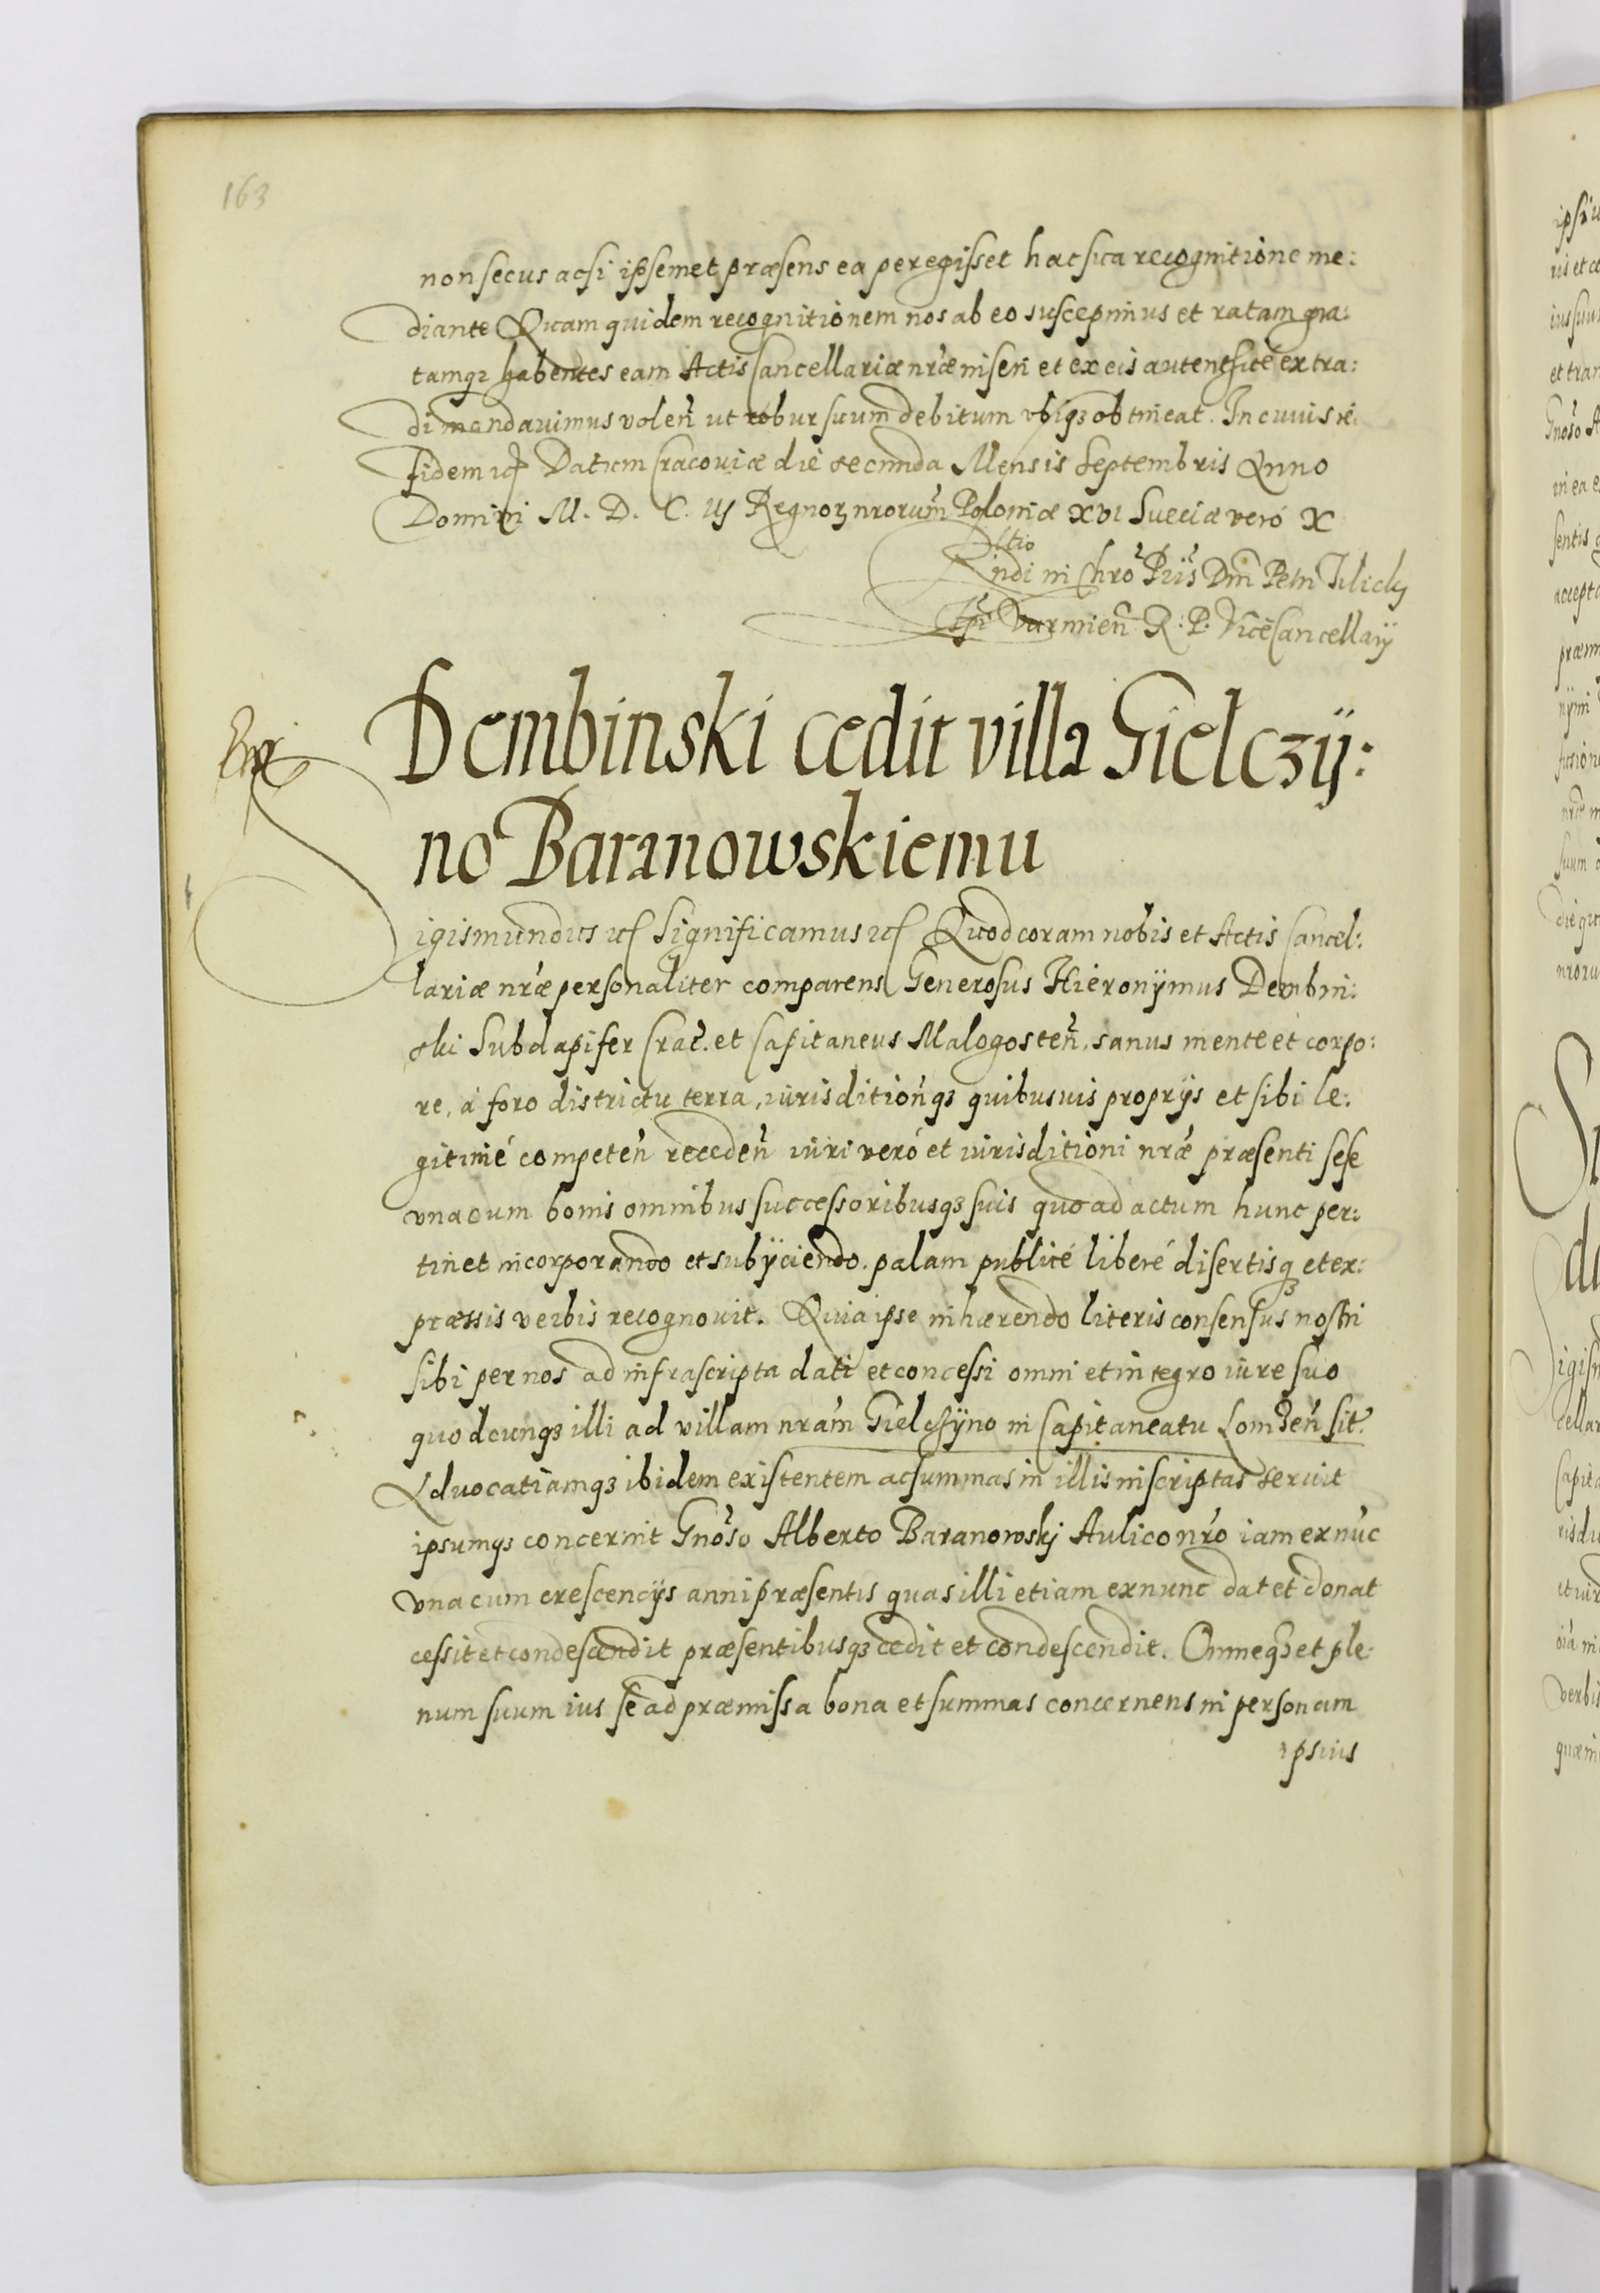 163
non secus acsi ipsemet præsens ea peregisset hac sua recognitione me:
diante Quam quidem recognitionem nos ab eo suscepimus et ratam gra:
tamq3 habentes eam Actis Cancellariæ nræ inseri et ex eis autentice extra:
di mandavimus volen̄ ut robur suum debitum ubiq3 obtineat. In cuius rei
fidem etc Datum Cracoviæ die secunda Mensis Septembris Anno
Domini M. D. C. iij Regnor3 nrorum Poloniæ XVI Sueciæ veró X
Rltio
Rndi in Chro Pris Dni Petri Tilicky
Epi Varmien̄ R. P. Vicecancellarij
Dembinski cedit villa Gielczÿ:
no Baranowskiemu
igismundus etc Significamus etc Quod coram nobis et Actis Cancel:
lariæ nræ personaliter comparens Generosus Hieronÿmus Dembin:
ski Subdapifer Crac. et Capitaneus Malogosten̄, sanus mente et corpo:
re, á foro districtu terra, iurisdition̄q3 quibusuis proprijs et sibi le:
gitimé competen̄ receden̄ iuri veró et iurisditioni nræ præsenti sese
vna cum bonis omnibus successoribusq3 suis quo ad actum hunc per:
tinet incorporando et subÿciendo. palam publicé liberé disertisq3 et ex:
præssis verbis recognouit. Quia ipse inhærendo literis consensus nostri
sibi per nos ad infrascripta dati et concessi omni et integro iure suo
quodcunq3 illi ad villam nram Gielczÿno in Capitaneatu Lomzen̄ sit.
Advocatiamq3 ibidem existentem ac summas in illis inscriptas seruit
ipsumq3 concernit Gnoso Alberto Baranowskj Aulico nro iam ex nuc
vna cum crescencijs anni præsentis quas illi etiam ex nunc dat et donat
cessit et condescendit præsentibusq3 cedit et condescendit. Omneq3 et ple:
num suum ius se ad præmissa bona et summas concernens in personam
ipsius